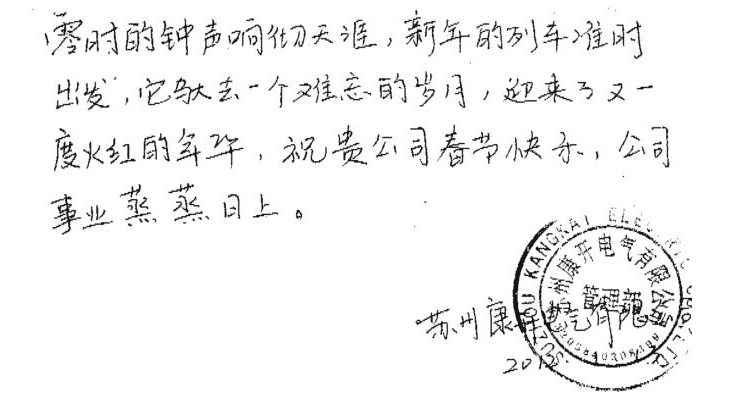 零时的钟声响彻天涯，新年的列车准时
出发，它驮去一个难忘的岁月，迎来了又一
度火红的年华，祝贵公司春节快乐，公司
事业蒸蒸日上。
SUZHOU KANGKAI ELECTRIC CO.,LTD.
苏州康开电气有限公司
管理部
苏州康开电气有限